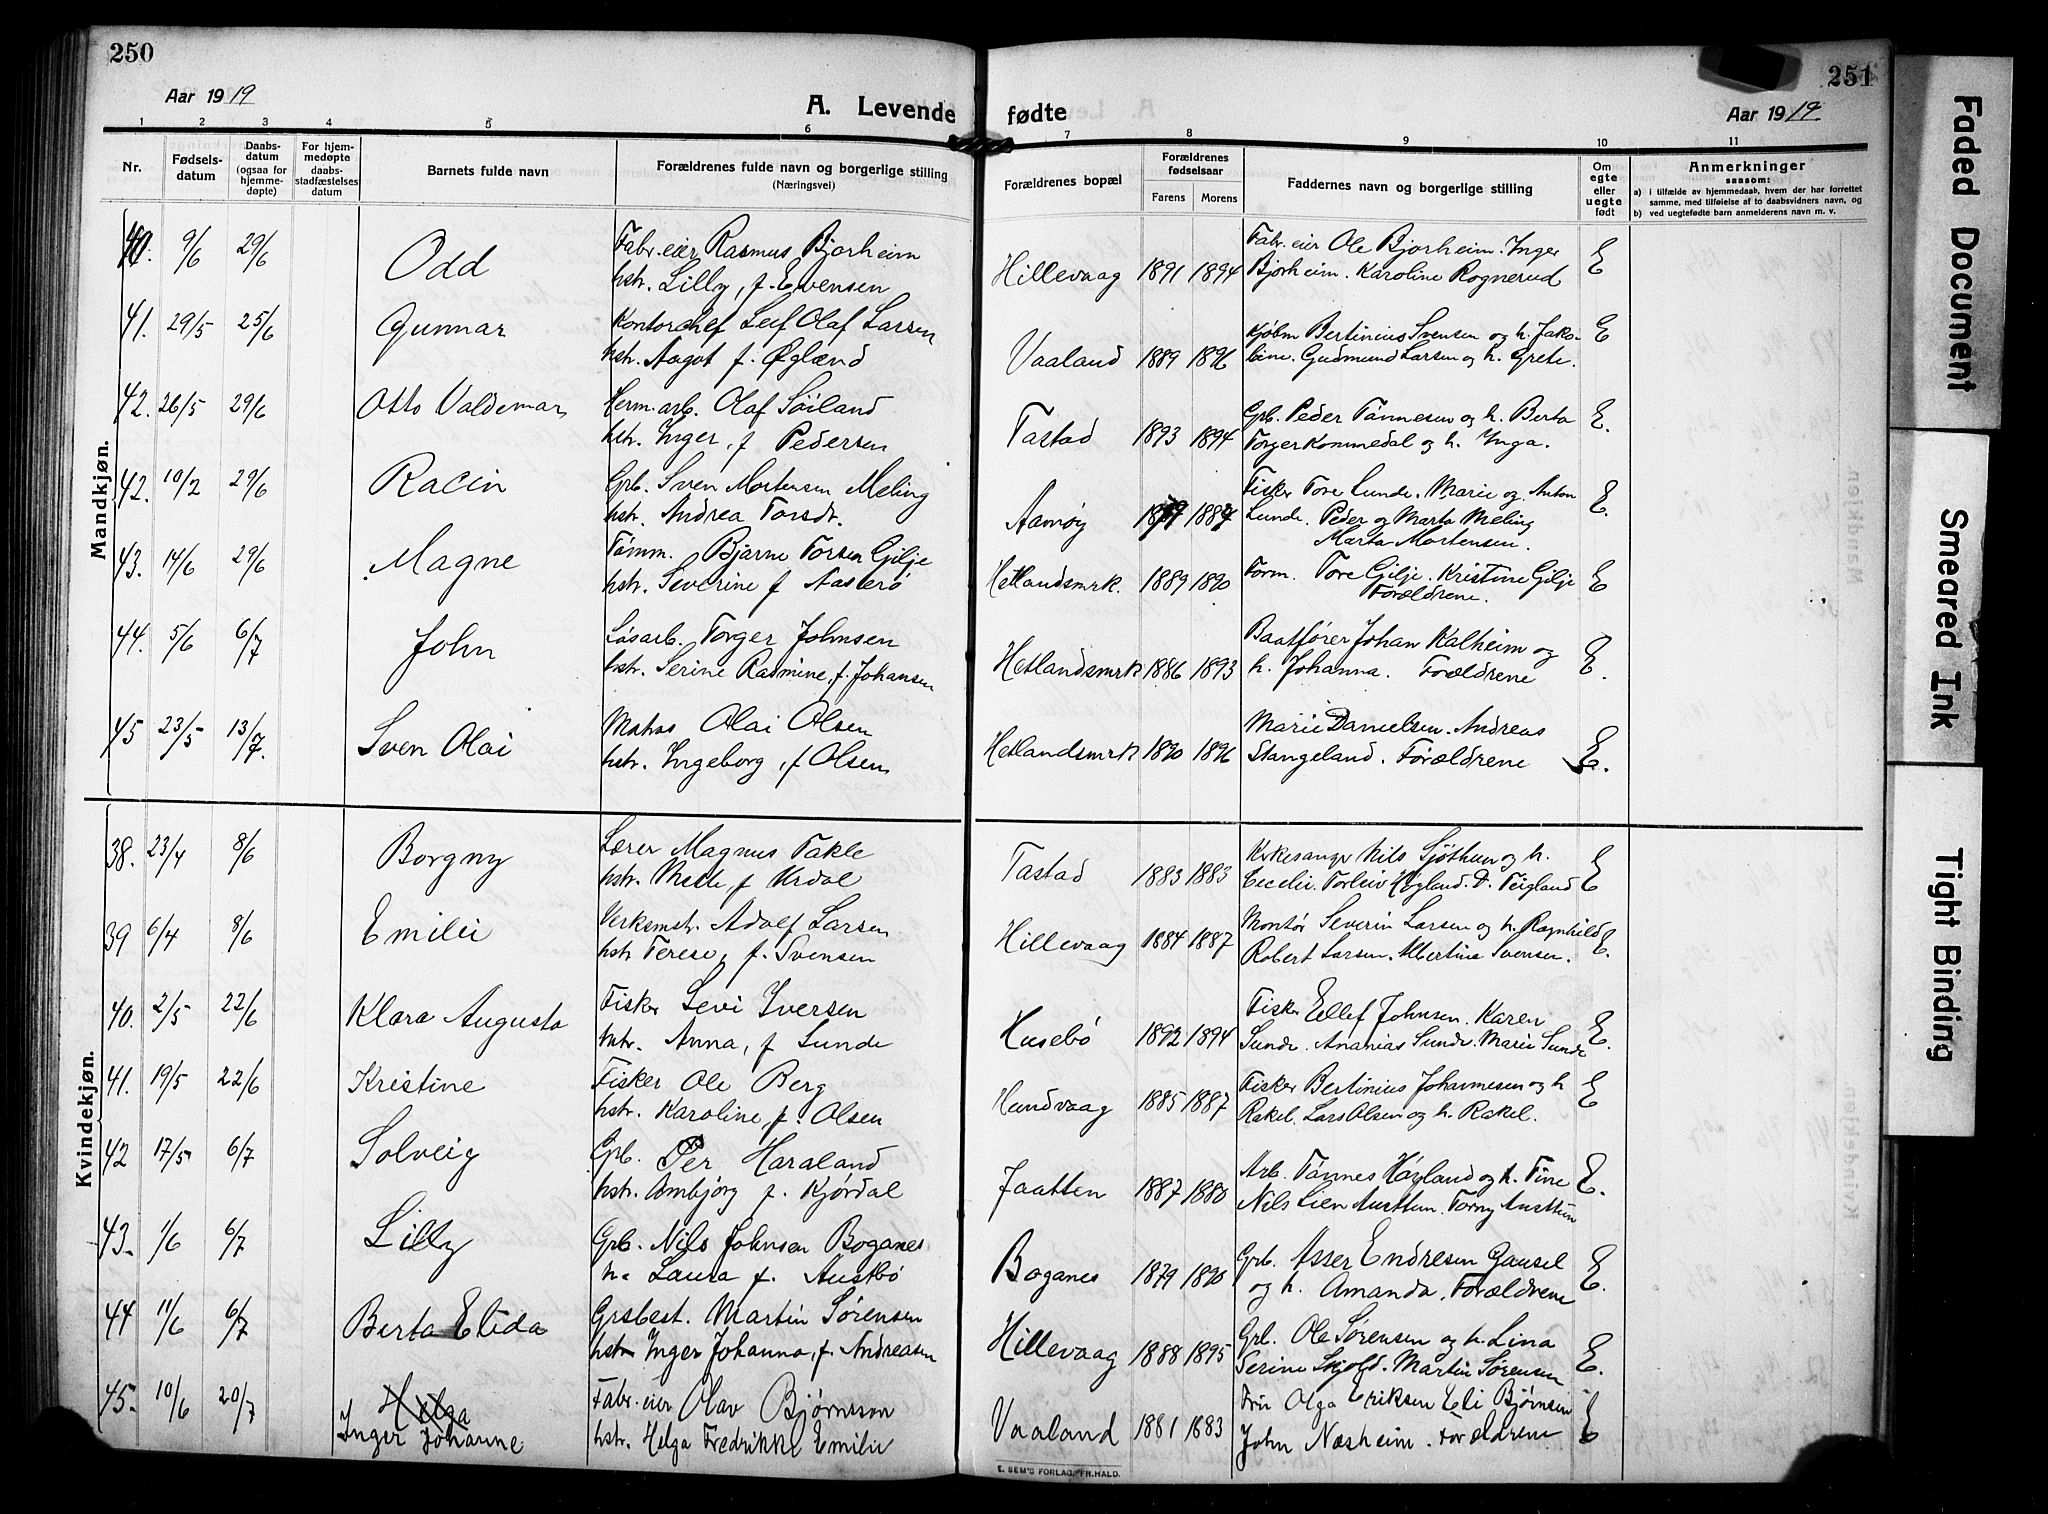 250
Aar 1919
A. Levende
1 2 3 4 5 6
Nr.
Fødsels-
datum
Daabs-
datum
(ogsaa for
hjemme-
døpte)
For hjem-
medøpte
daabs-
stadfæstelses
datum
Barnets fulde navn
Forældrenes fulde navn og borgerlige stilling
(Næringsvei)
Mandkjøn.
40. 9/6 29/6 Odd Fabr.eier Rasmus Bjorheim
hstr. Lilly, f. Evensen
41. 29/5 25/6 Gunnar Kontorchef Leif Olaf Larsen
hstr. Aagot f. Øglænd
42. 26/5 29/6 Otto Valdemar Herm.arb. Olaf Söiland
hstr. Inger, f Pedersen
42. 10/2 29/6 Racin Grb. Sven Mortensen Meling
hstr. Andrea Torsdr.
43. 14/6 29/6 Magne Tømm. Bjarne Torsen Gilje
hstr. Severine f Aasterö
44. 5/6 6/7 John Løsarb. Torger Johnsen
hstr. Serine Rasmine, f. Johansen
45 23/5 13/7. Sven Olai Matros Olai Olsen
hstr. Ingeborg, f Olsen
Kvindekjøn.
38. 23/4 8/6 Borgny Lærer Magnus Takle
hstr. Mette f Urdal
39 6/4 8/6 Emilie Verksmstr. Adolf Larsen
hstr Terese, f. Svensen
40. 2/5 22/6 Klara Augusta Fisker Levi Iversen
hstr. Anna, f Lunde
41. 19/5 22/6 Kristine Fisker Ole Berg
hstr. Karoline, f. Olsen
42 17/5 6/7 Solveig Grb. Per Haraland
hstr. Ambjörg f. Kjørdal
43. 1/6 6/7 Lilly Grb. Nils Johnsen Boganes
h. Laura f. Austbø
44 11/6 6/7 Berta Elida Grsbest. Martin Sørensen
hstr Inger Johanna, f. Andreasen
45. 10/6 20/7 Helga Fabr.eier Olav Bjørnsson
Inger Johanne hstr. Helga Fredrikke Emilie
251
fødte
Aar 1919
7 8 9 10 11
Forældrenes bopæl
Forældrenes
fødselsaar
Farens Morens
Faddernes navn og borgerlige stilling
Om
egte
eller
uegte
født
Anmerkninger
saasom:
a) i tilfælde av hjemmedaab, hvem der har forrettet
samme, med tilføielse af to daabsvidners navn, og
b) ved uegtefødte barn anmelderens navn m. v.
Hillevaag 1891 1894 Fabr.eier Ole Bjorheim. Inger E
Bjorheim. Karoline Rognerud
Vaaland 1889 1896 Kjøbm Bertinius Svensen og h. Jako- E
bine. Gudmund Larsen og h. Grete.
Tastad 1893 1894 Grb. Peder Tönnesen og h. Berta E.
Torger Kommedal og h. Inga.
Aamøy 1884 Fisker Tore Lunde. Marie og Anton E.
Lunde. Peder og Marta Meling
Marta Mortensen.
Hetlandsmrk. 1889 1890 Form. Tore Gilje. Kristine Gilje E
Forældrene.
Hetlandsmrk 1886 1893 Baatfører Johan Kalheim og E.
h. Johanna. Forældrene
Hetlandsmrk 1890 1896 Marie Danielsen. Andreas
Stangeland. Forældrene E.
Tastad 1883 1883 Kirkesanger Nils Sjøthun og h.
Cecelie. Torleiv Høyland. D. Teigland E
Hillevaag 1884 1887 Montør Severin Larsen og h. Ragnhild
Robert Larsen. Albertine Svensen. E.
Husebö 1892 1894 Fisker Ellef Johnsen. Karen E.
Sunde. Ananias Sunde. Marie Sunde
Hundvaag 1885 1887 Fisker Bertinius Johannesen og h E
Rakel. Lars Olsen og h. Rakel.
Jaatten 1887 1880 Arb. Tönnes Höyland og h. Tine E.
Nils Lien Austtun. Torny Austtun
Boganes 1879 1890 Grb. Asser Endresen Gausel E.
og h. Amanda. Forældrene
Hillevaag 1888 1895 Grb. Ole Sørensen og h. Lina E.
Serine Skjold. Martin Sørensen
Vaaland 1881 1883 Fru Olga Eriksen Eli Bjørnsen E
John Næsheim. Forældrene
E. SEM'S FORLAG, FR.HALD.
Faded Document
Smeared Ink
Tight Binding